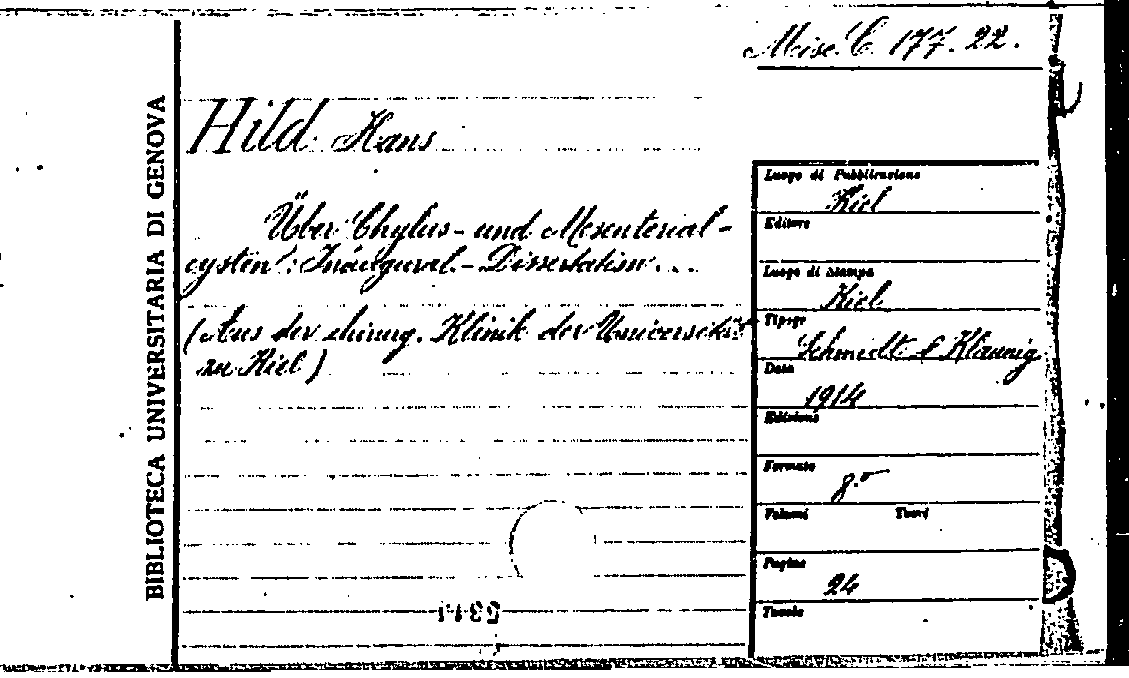 Misc. C. 177. 22.
BIBLIOTECA UNIVERSITARIA DI GENOVA
Hild Hans
Über Chylus- und Mesenterial-
cysten: Inaugural-Dissertation...
(Aus der chirurg. Klinik der Universität
zu Kiel)
Luogo di Pubblicazione
Kiel
Editore
Luogo di stampa
Kiel
Tipogr
Schmidt & Klaunig
Data
1914
Edizione
Formato
8.°
Volumi Tomi
Pagine
24
Tavole